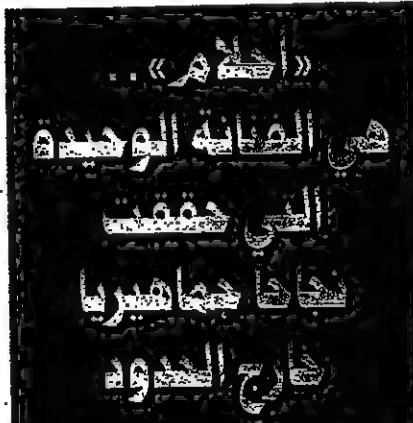 «أحلام» ..
هي الفنانة الوحيدة
التي حققت
نجاحا جماهيريا
خارج الحدود